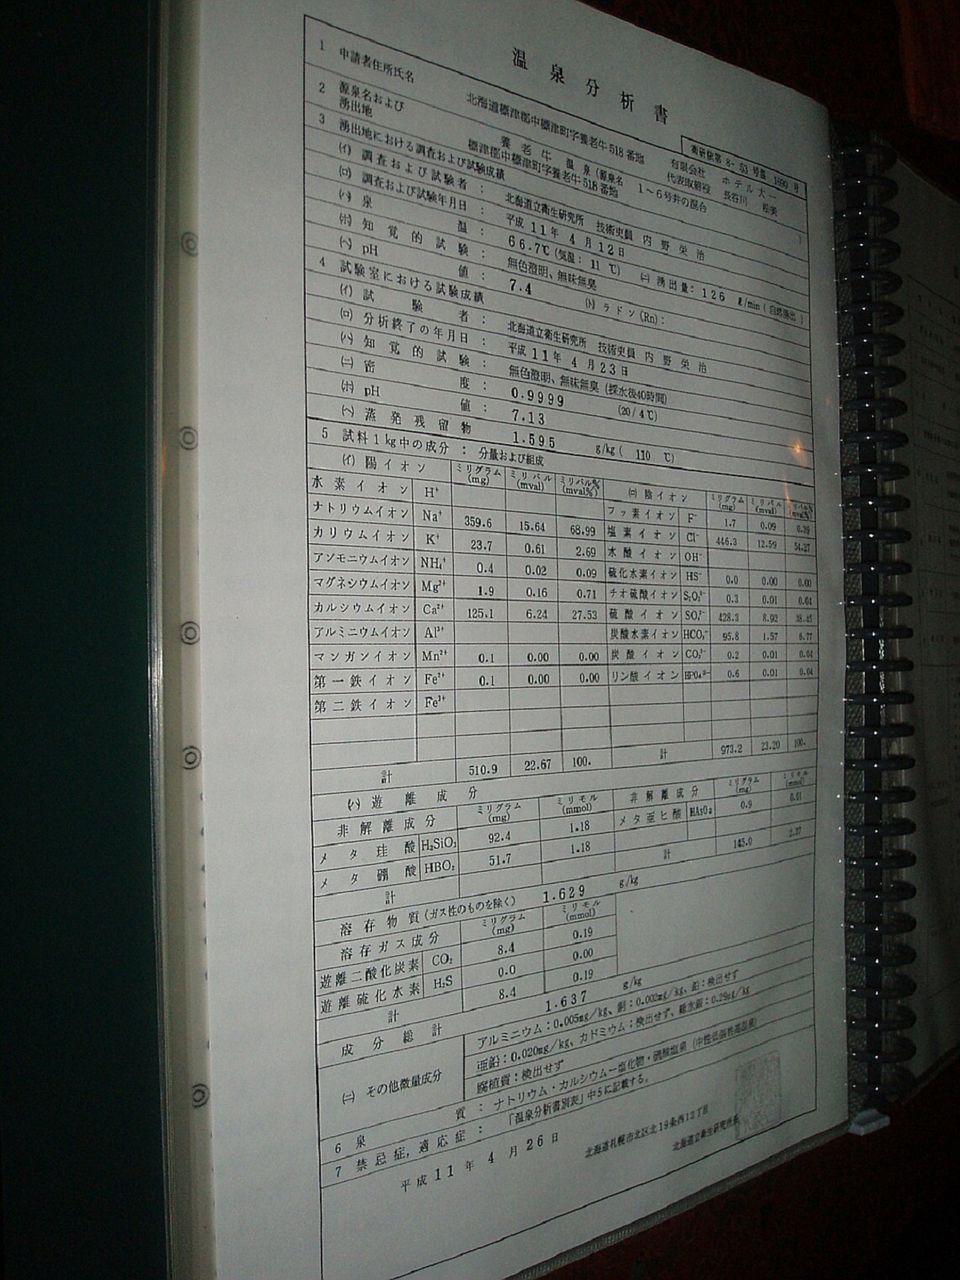 温泉分析書
衛研温第 8- 53 号 1690 号
1 申請者住所氏名 北海道標津郡中標津町字養老牛518番地 有限会社 ホテル大一
代表取締役 長谷川
2 源泉名および湧出地 養老牛温泉 (源泉名 1～6号井の混合 )
標津郡中標津町字養老牛518番地
3 湧出地における調査および試験成績
(イ) 調査および試験者 : 北海道立衛生研究所 技術吏員 内野栄治
(ロ) 調査および試験年月日 : 平成11年 4月12日
(ハ) 泉温 : 66.7℃(気温: 11℃) (ニ) 湧出量 : 126 ℓ/min (自然湧出)
(ホ) 知覚的試験 : 無色澄明、無味無臭
(ヘ) pH値 : 7.4 (ト) ラドン(Rn) :
4 試験室における試験成績
(イ) 試験者 : 北海道立衛生研究所 技術吏員 内野栄治
(ロ) 分析終了の年月日 : 平成11年 4月23日
(ハ) 知覚的試験 : 無色澄明、無味無臭 (採水後40時間)
(ニ) 密度 : 0.9999 (20/4℃)
(ホ) pH値 : 7.13
(ヘ) 蒸発残留物 : 1.595 g/kg ( 110 ℃)
5 試料1kg中の成分 : 分量および組成
(イ) 陽イオン ミリグラム(mg) ミリバル(mval) ミリバル%(mval%) (ロ) 陰イオン ミリグラム(mg) ミリバル(mval) ミリバル%(mval%)
水素イオン H⁺ フッ素イオン F⁻ 1.7 0.09 0.39
ナトリウムイオン Na⁺ 359.6 15.64 68.99 塩素イオン Cl⁻ 446.3 12.59 54.27
カリウムイオン K⁺ 23.7 0.61 2.69 水酸イオン OH⁻
アンモニウムイオン NH₄⁺ 0.4 0.02 0.09 硫化水素イオン HS⁻ 0.0 0.00 0.00
マグネシウムイオン Mg²⁺ 1.9 0.16 0.71 チオ硫酸イオン S₂O₃²⁻ 0.3 0.01 0.04
カルシウムイオン Ca²⁺ 125.1 6.24 27.53 硫酸イオン SO₄²⁻ 428.3 8.92 38.45
アルミニウムイオン Al³⁺ 炭酸水素イオン HCO₃⁻ 95.8 1.57 6.77
マンガンイオン Mn²⁺ 0.1 0.00 0.00 炭酸イオン CO₃²⁻ 0.2 0.01 0.04
第一鉄イオン Fe²⁺ 0.1 0.00 0.00 リン酸イオン HPO₄²⁻ 0.6 0.01 0.04
第二鉄イオン Fe³⁺
計 510.9 22.67 100. 計 973.2 23.20 100.
(ハ) 遊離成分
非解離成分 ミリグラム(mg) ミリモル(mmol) 非解離成分 ミリグラム(mg) ミリモル(mmol)
メタ珪酸 H₂SiO₃ 92.4 1.18 メタ亜ヒ酸 HAsO₂ 0.9 0.01
メタ硼酸 HBO₂ 51.7 1.18
計 計 145.0 2.37
溶存物質(ガス性のものを除く) 1.629 g/kg
溶存ガス成分 ミリグラム(mg) ミリモル(mmol)
遊離二酸化炭素 CO₂ 8.4 0.19
遊離硫化水素 H₂S 0.0 0.00
計 8.4 0.19
成分総計 1.637 g/kg
(ニ) その他微量成分 アルミニウム:0.005mg/kg、銅:0.002mg/kg、鉛:検出せず
亜鉛:0.020mg/kg、カドミウム:検出せず、総水銀:0.29μg/kg
腐植質:検出せず
6 泉質 : ナトリウム・カルシウム−塩化物・硫酸塩泉 (中性低張性高温泉)
7 禁忌症,適応症 : 「温泉分析書別表」中5に記載する。
平成11年 4月26日
北海道札幌市北区北19条西12丁目
北海道立衛生研究所長